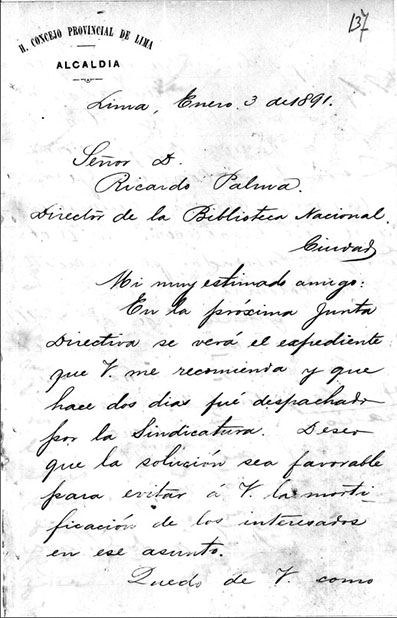 137
H. CONCEJO PROVINCIAL DE LIMA
ALCALDIA
Lima, Enero 3 de 1891.
Señor D.
Ricardo Palma.
Director de la Biblioteca Nacional.
Ciudad
Mi muy estimado amigo:
En la próxima Junta
Directiva se verá el expediente
que V. me recomienda y que
hace dos dias fué despachado
por la Sindicatura. Deseo
que la solución sea favorable
para evitar á V. la morti-
ficación de los interesados
en ese asunto.
Quedo de V. como